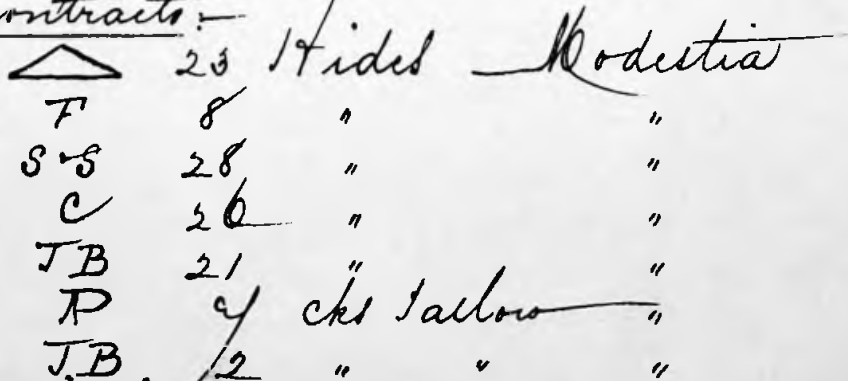 Contracts:-
23 Hides Modestia
F 8 " "
S&S 28 " "
C 26 " "
JB 21 " "
cks Tallow "
J.B. 12 " " "